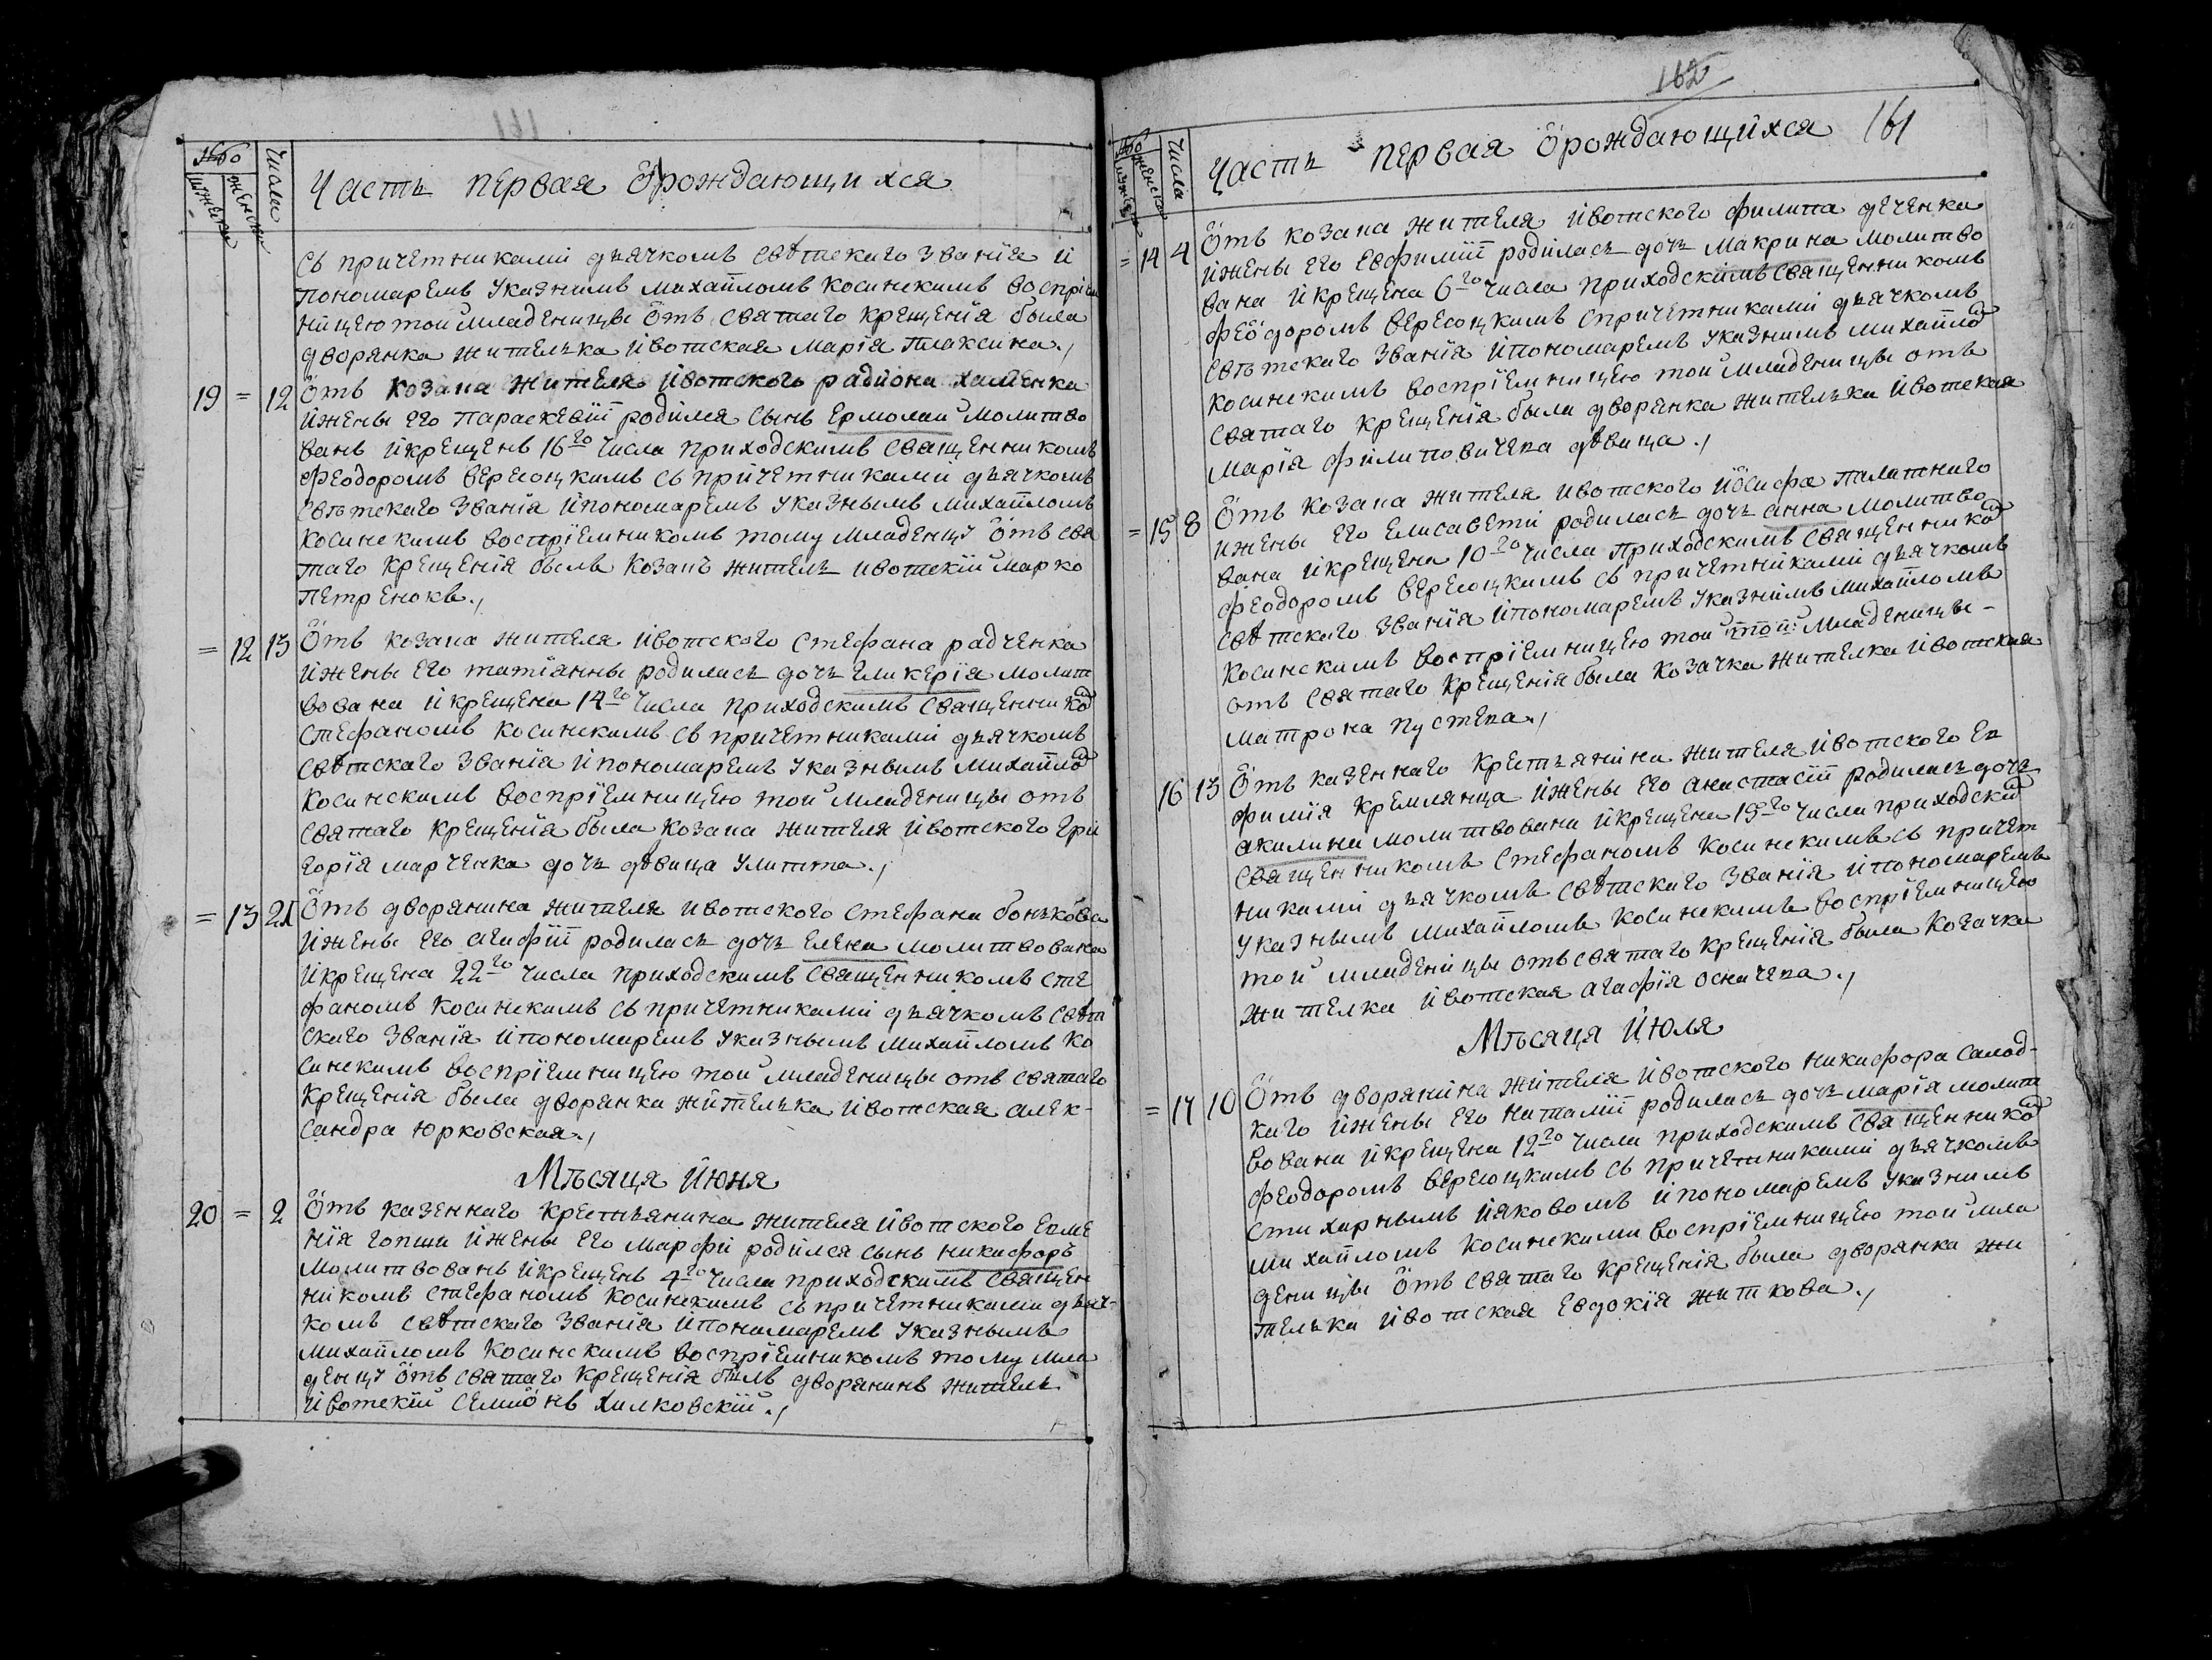 161
Часть первая Орождающихся
Числа
съ причетниками дьячкомъ свѣтскаго званія и
пономаремъ Указнимъ михайломъ Косинскимъ воспріем
ницею той младеницы Отъ святаго крещенія была
дворянка жителька ивотская марія Плаксина./
19 = 12 Отъ козака жителя ивотского радиона хаменка
ижены его параскевіи родился сынъ Ермолай молитво
ванъ икрещенъ 16го числа приходскимъ священникомъ
феодоромъ вересоцкимъ съ причетниками дьячкомъ
свѣтскаго званія ипономаремъ указнымъ михайломъ
косинскимъ воспріемникомъ тому младенцу Отъ свя
таго крещенія былъ козакъ житель ивотскій марко
петренокъ./
= 12 13 Отъ козака жителя ивотского стефана радченка
ижены его татіанны родилась дочь гликерія молит
вована икрещена 14го числа приходскимъ священнико
стефаномъ косинскимъ съ причетниками дьячкомъ
свѣтскаго званія ипономаремъ указнымъ михайло
косинскимъ воспріемницею той младеницы отъ
святаго крещенія была козака жителя ивотского гри
горія марченка дочь дѣвица улитта./
= 13 21 Отъ дворянина жителя ивотского стефана бонькова
ижены его агафіи родилась дочь елена молитвована
икрещена 22го числа приходскимъ священникомъ сте
фаномъ косинскимъ съ причетниками дьячкомъ свѣт
скаго званія ипономаремъ указнымъ михайломъ ко
синскимъ воспріемницею той младеницы отъ святаго
крещенія была дворянка жителька ивотская алек-
сандра юрковская./
Мѣсяца июня
20 = 2 Отъ казеннаго крестьянина жителя ивотского евме
нія гопши ижены его марфи родился сынъ никифоръ
молитвованъ икрещенъ 4го числа приходскимъ священ
никомъ стефаномъ косинскимъ съ причетниками дьяч-
комъ свѣтскаго званія ипономаремъ указнымъ
михайломъ косинскимъ воспріемникомъ тому мла
денцу Отъ святаго крещенія былъ дворянинъ житель
ивотскій семионъ хилковскій./
162
Часть первая Орождающихся 161
Числа
= 14 4 Отъ козака жителя ивотского филипа деченка
ижены его евфиміи родилась дочь макрина молитво
вана икрещена 6го числа приходскимъ священникомъ
феодоромъ вересоцкимъ спричетниками дьячкомъ
свѣтскаго званія ипономаремъ указнимъ михайло
косинскимъ воспріемницею той младеницы отъ
святаго крещенія была дворянка жителька ивотская
марія филиповичева дѣвица./
= 15 8 Отъ козака жителя ивотского иосифа палатного
ижены его елисавети родилась дочь анна молитво
вана икрещена 10го числа приходскимъ священнико
феодоромъ вересоцкимъ съ причетниками дьячкомъ
свѣтскаго званія ипономаремъ указнимъ михайломъ
косинскимъ воспріемницею той той младеницы-
отъ святаго крещенія была козачка жителка ивотская
матрона пустева./
16 13 Отъ казеннаго крестьянина жителя ивотского ев
фимія кремлянца ижены его анастасіи родилась дочь
акилина молитвована икрещена 15го числа приходски
священникомъ стефаномъ косинскимъ съ причет
никами дьячкомъ свѣтскаго званія ипономаремъ
указнымъ михайломъ косинскимъ воспріемницею
той младеницы отъ святаго крещенія была козачка
жителка ивотская агафія осначева./
Мѣсяца июля
= 17 10 Отъ дворянина жителя ивотского никифора салод-
каго ижены его наталіи родилась дочь марія молит
вована икрещена 12го числа приходскимъ священнико
феодоромъ вересоцкимъ съ причетниками дьячкомъ
стихарнымъ иаковомъ ипономаремъ указнимъ
михайломъ косинскими воспріемницею той мла
деницы Отъ святаго крещенія была дворянка жи
телька ивотская евдокія житкова./